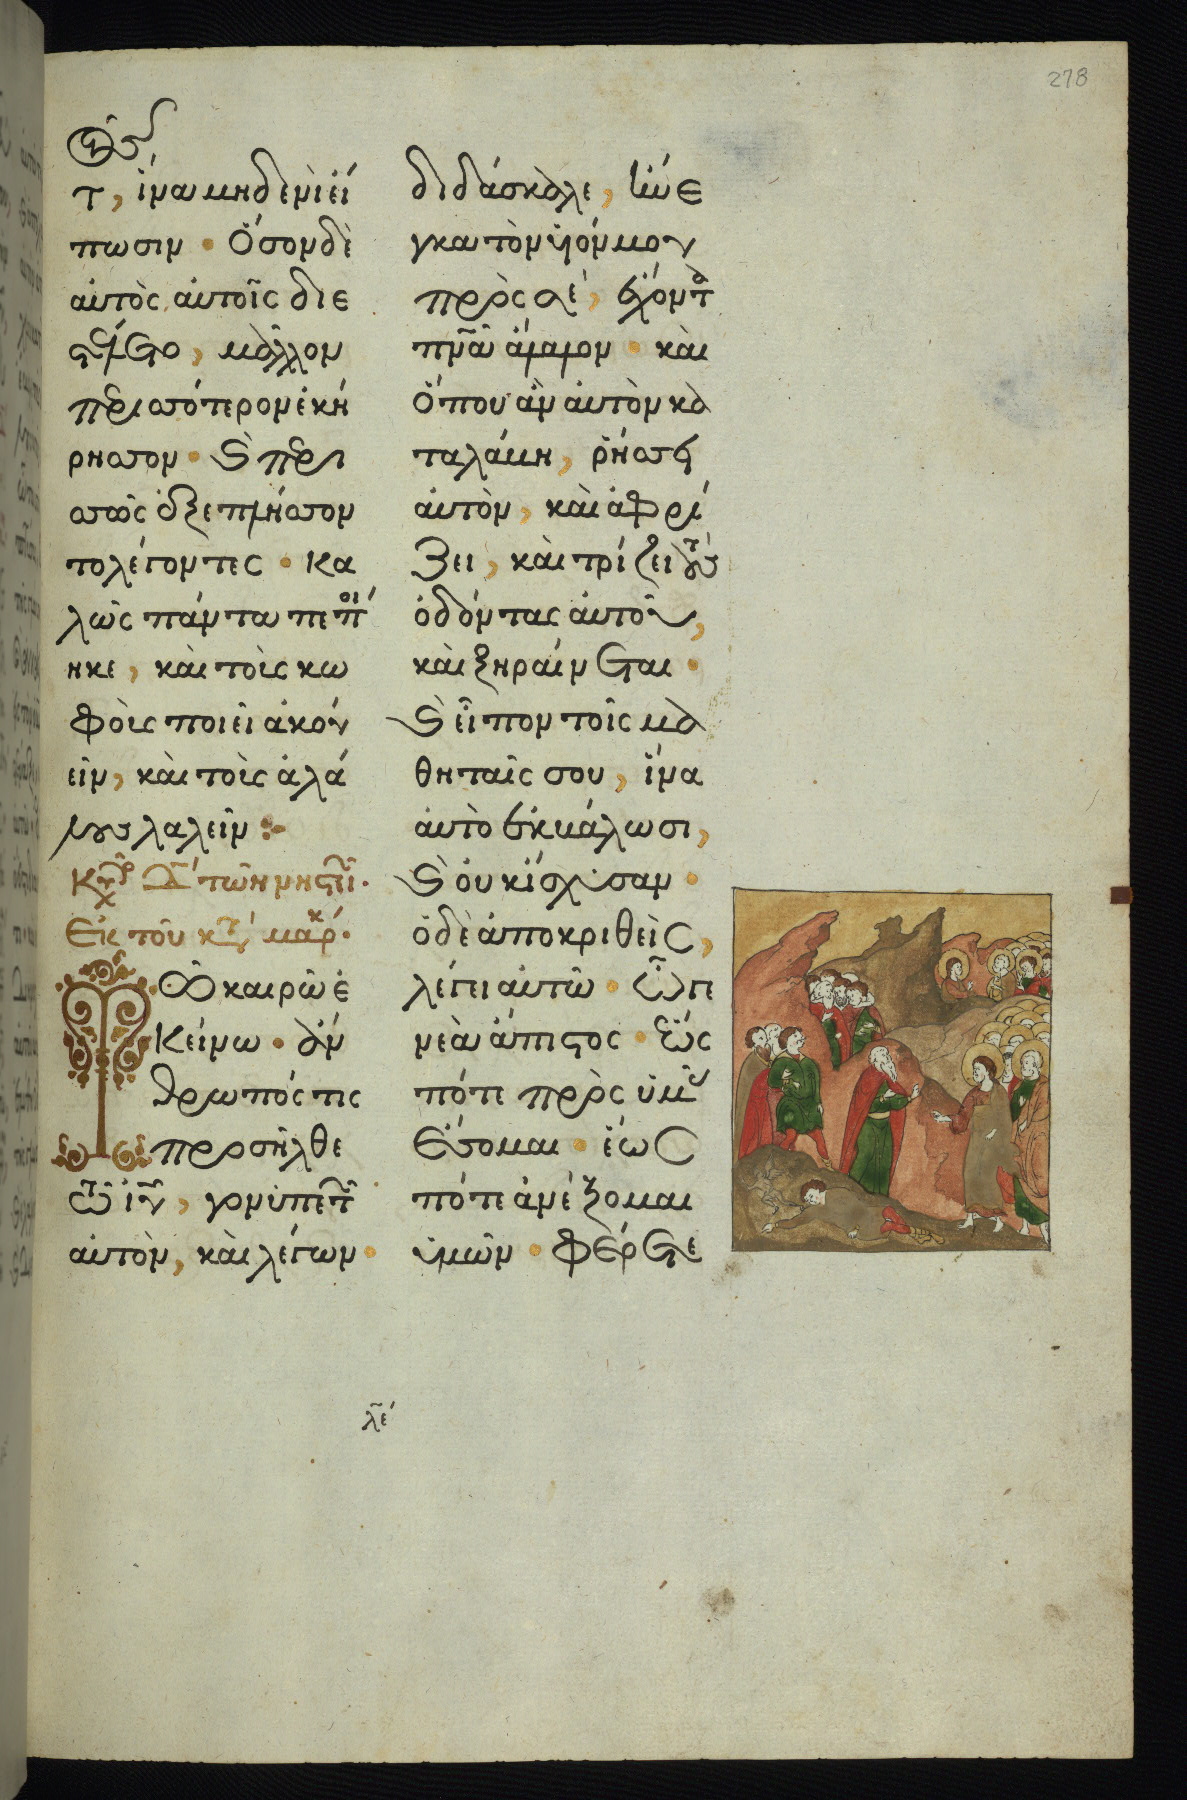 278
τ, ἵνα μηδενὶ εἴ
πωσιν · Ὅσον δὲ
αὐτὸς αὐτοῖς διε
στέλλετο, μᾶλλον
περισσότερον ἐκή
ρησσον · Ϗ περι
σσῶς ἐξεπλήσσον
το λέγοντες · Κα
λῶς πάντα πεποί
ηκε, καὶ τοὺς κω
φοὺς ποιεῖ ἀκού
ειν, καὶ τοὺς ἀλά
λους λαλεῖν :
Κυρ Δ´ τῶν νηστει ·
Ἐκ τοῦ κτ μαρκ ·
Τῷ καιρῷ ἐ
κείνῳ · ἄν
θρωπός τις
προσῆλθε
τῶ ἰυ, γονυπετῶ
αὐτὸν, καὶ λέγων ·
διδάσκαλε, ἤνε
γκα τὸν υἱόν μου
πρὸς σὲ, ἔχοντα
πνα ἄλαλον · καὶ
ὅπου ἂν αὐτὸν κα
ταλάβη, ῥήσσει
αὐτὸν, καὶ ἀφρί
ζει, καὶ τρίζει τοὺς
ὀδόντας αὐτοῦ,
καὶ ξηραίνεται ·
Ϗ εἶπον τοῖς μα
θηταῖς σου, ἵνα
αὐτὸ ἐκβάλωσι,
Ϗ οὐκ ἴσχυσαν ·
ὁ δὲ ἀποκριθεὶς,
λέγει αὐτῷ · Ὦ γε
νεὰ ἄπιστος · ἕως
πότε πρὸς ὑμᾶς
ἔσομαι · ἕως
πότε ἀνέξομαι
ὑμῶν · φέρετε
λε´